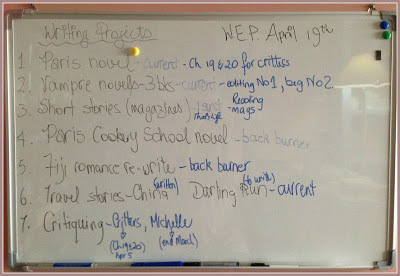 Writing Projects W.E.P. April 19th
1 Paris novel - current - Ch 19 & 20 for crittiss
2. Vampire novels - 3 bks - current - editing No1, beg No2.
3. Short stories (magazines) - Reading mags
4. Paris Cookery School novel - back burner
5. Fiji romance re-write - back burner
6. Travel stories - China (written) Darling Run (to write) - current
7. Critiquing - Critters, Michelle
(Ch 19 & 20) Apr 5 (end March)